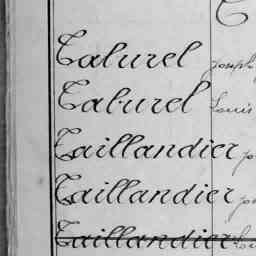 T
Taburel Joseph
Taburel Louis
Taillandier
Taillandier
Taillandier